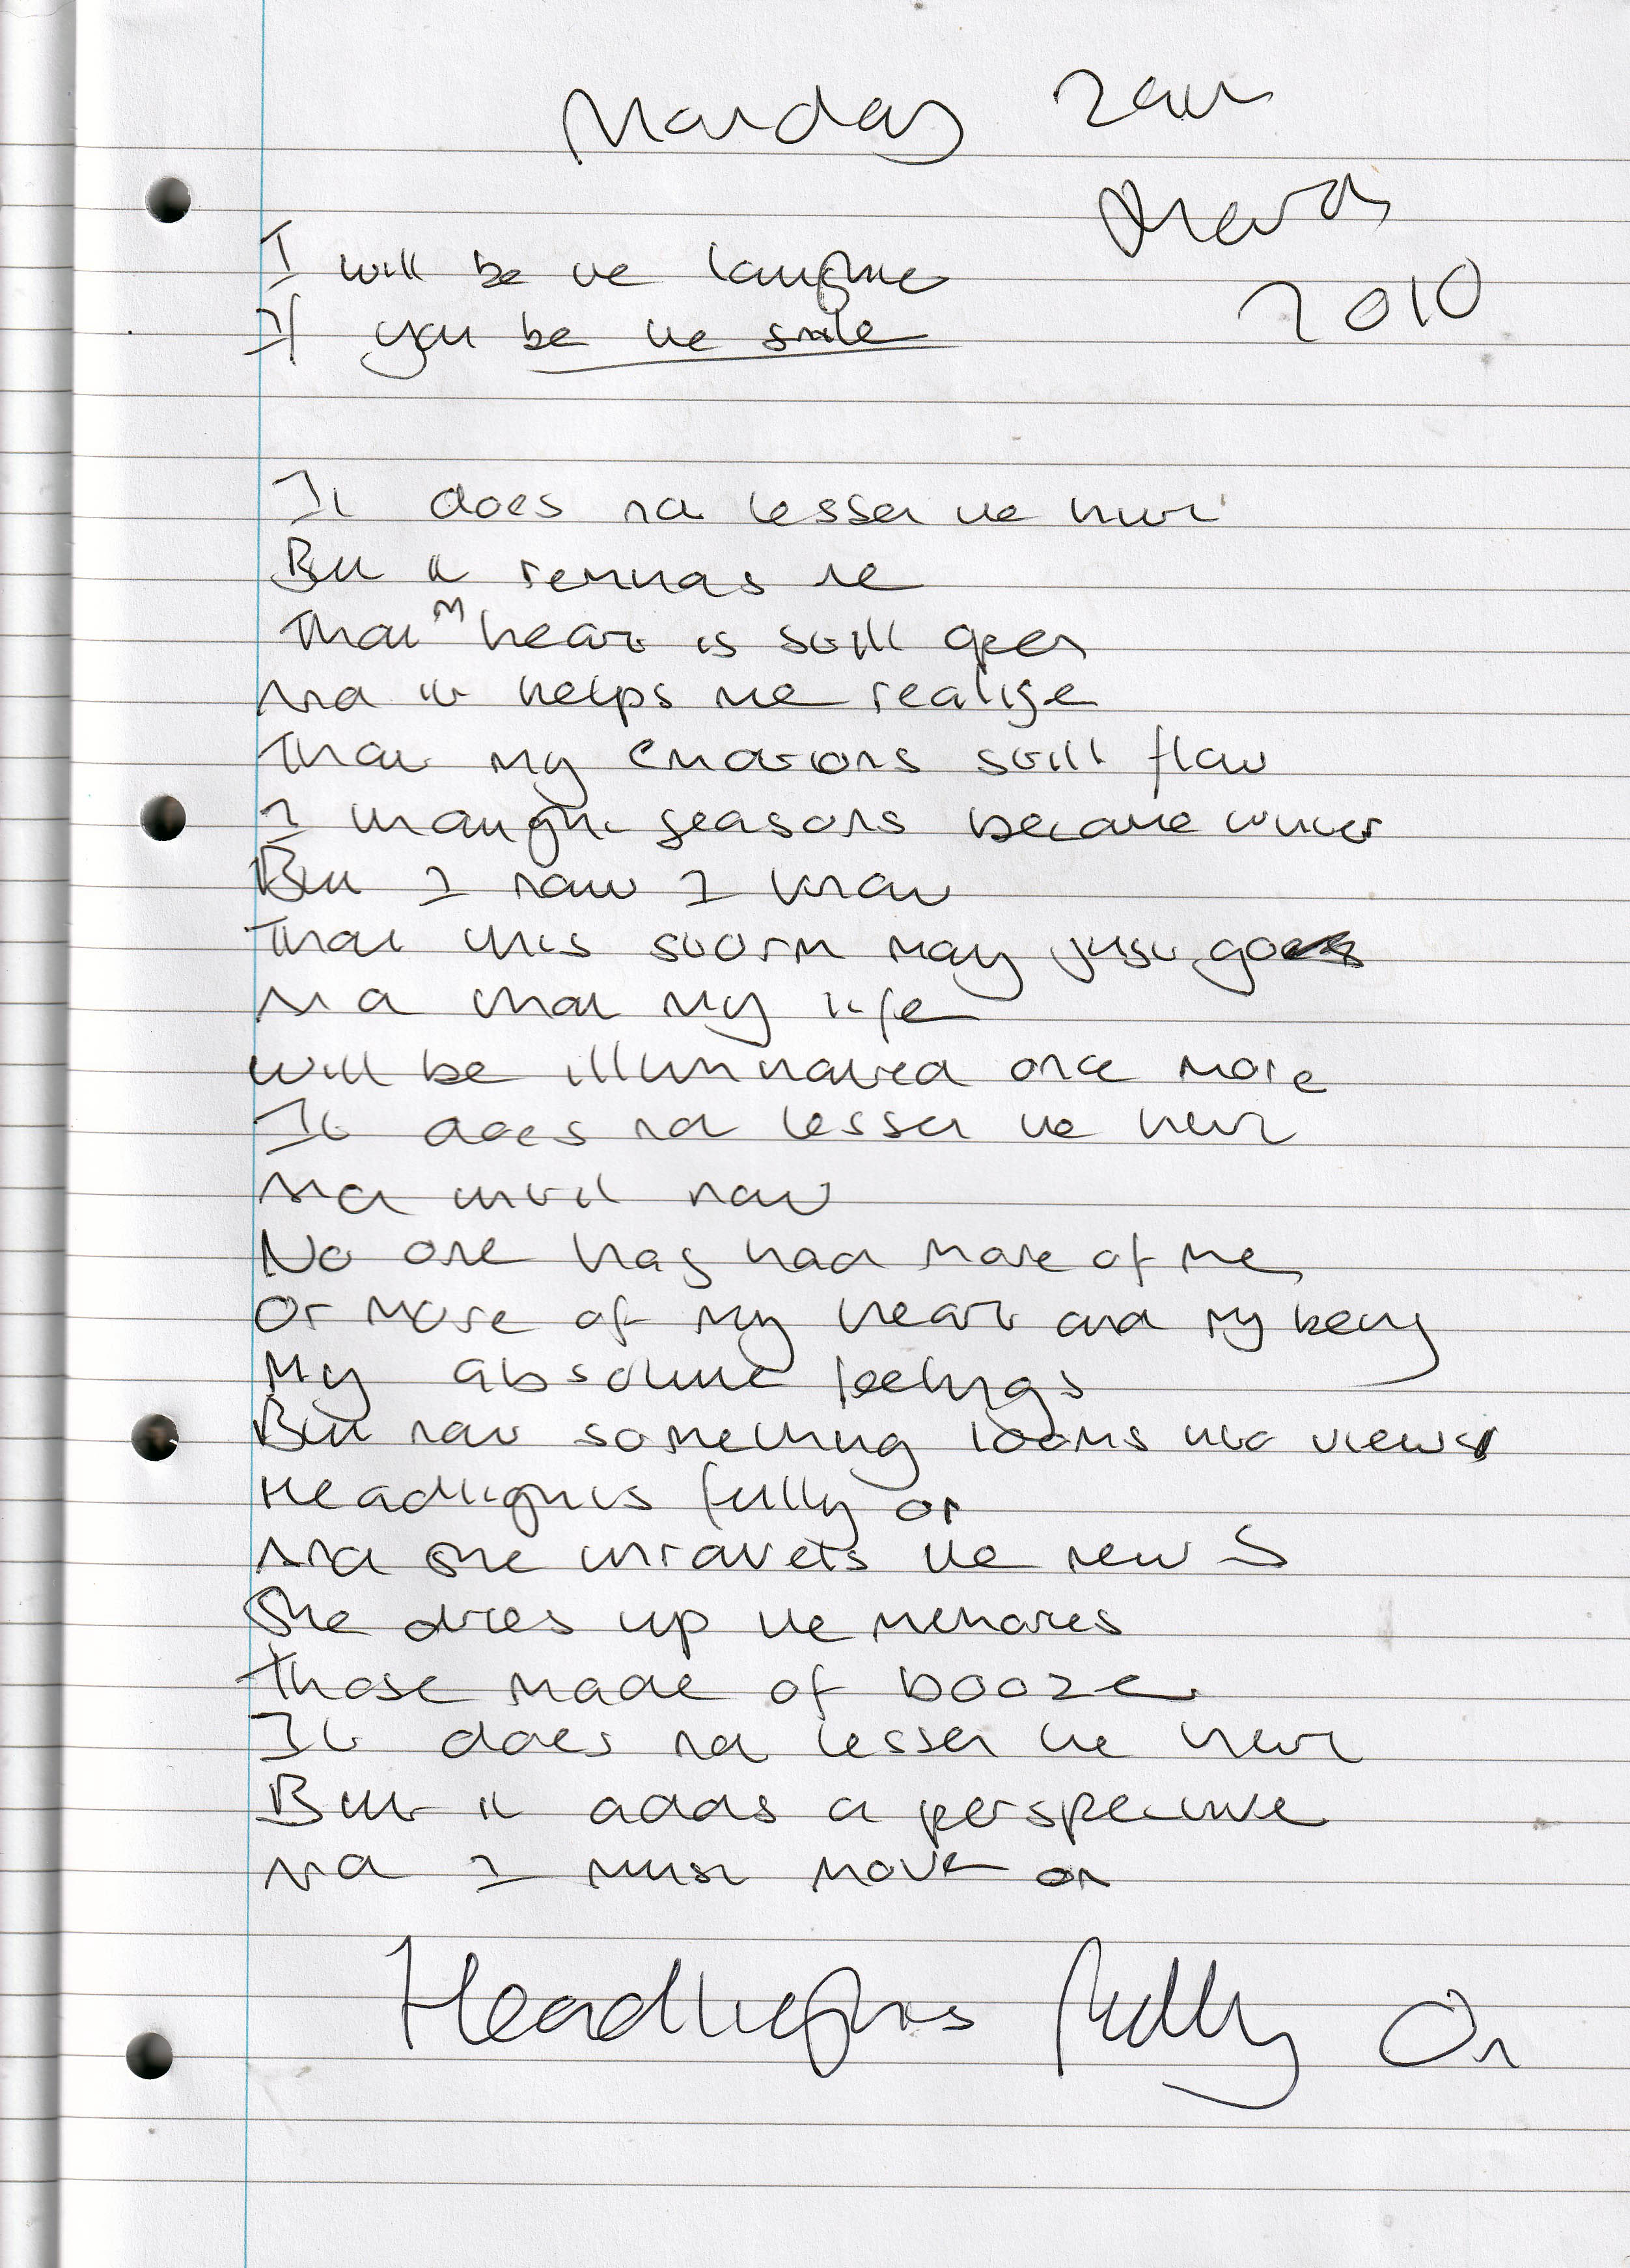 Monday 29th
March
2010
I will be the laughter
If you be the smile
It does not lessen the hurt
But it reminds me
That my heart is still open
And it helps me realise
That my emotions still flow
I thought seasons became winter
But I now I know
That this storm may just go
And that my life
will be illuminated once more
It does not lessen the hurt
And until now
No one has had more of me
Or more of my heart and my being
My absolute feelings
But now something looms into view
Headlights fully on
And she unravels the news
She dries up the memories
Those made of booze
It does not lessen the hurt
But it adds a perspective
And I must move on
Headlights fully On